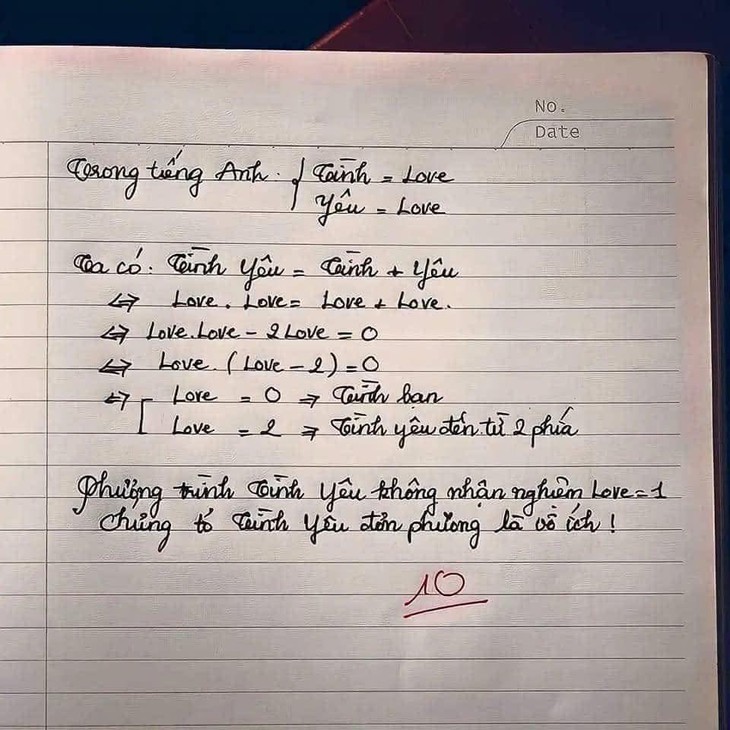 No.
Date
Trong tiếng Anh: { Tình = Love
Yêu = Love
Ta có: Tình Yêu = Tình + Yêu
⇔ Love . Love = Love + Love.
⇔ Love.Love - 2Love = 0
⇔ Love. (Love - 2) = 0
⇔ [ Love = 0 ⇒ Tình bạn
Love = 2 ⇒ Tình yêu đến từ 2 phía
Phương trình Tình Yêu không nhận nghiệm Love = 1
Chứng tỏ Tình Yêu đơn phương là vô ích!
10